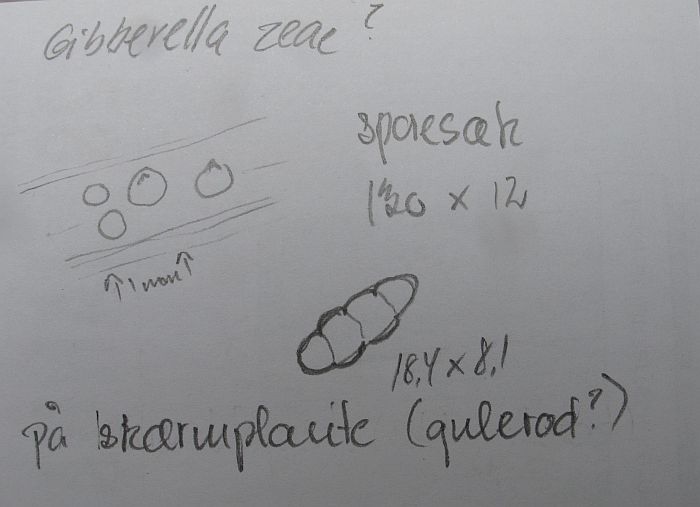 Gibberella zeae?
sporesæk
120 x 12
↑1 mm↑
18,4 x 8,1
på skærmplante (gulerod?)